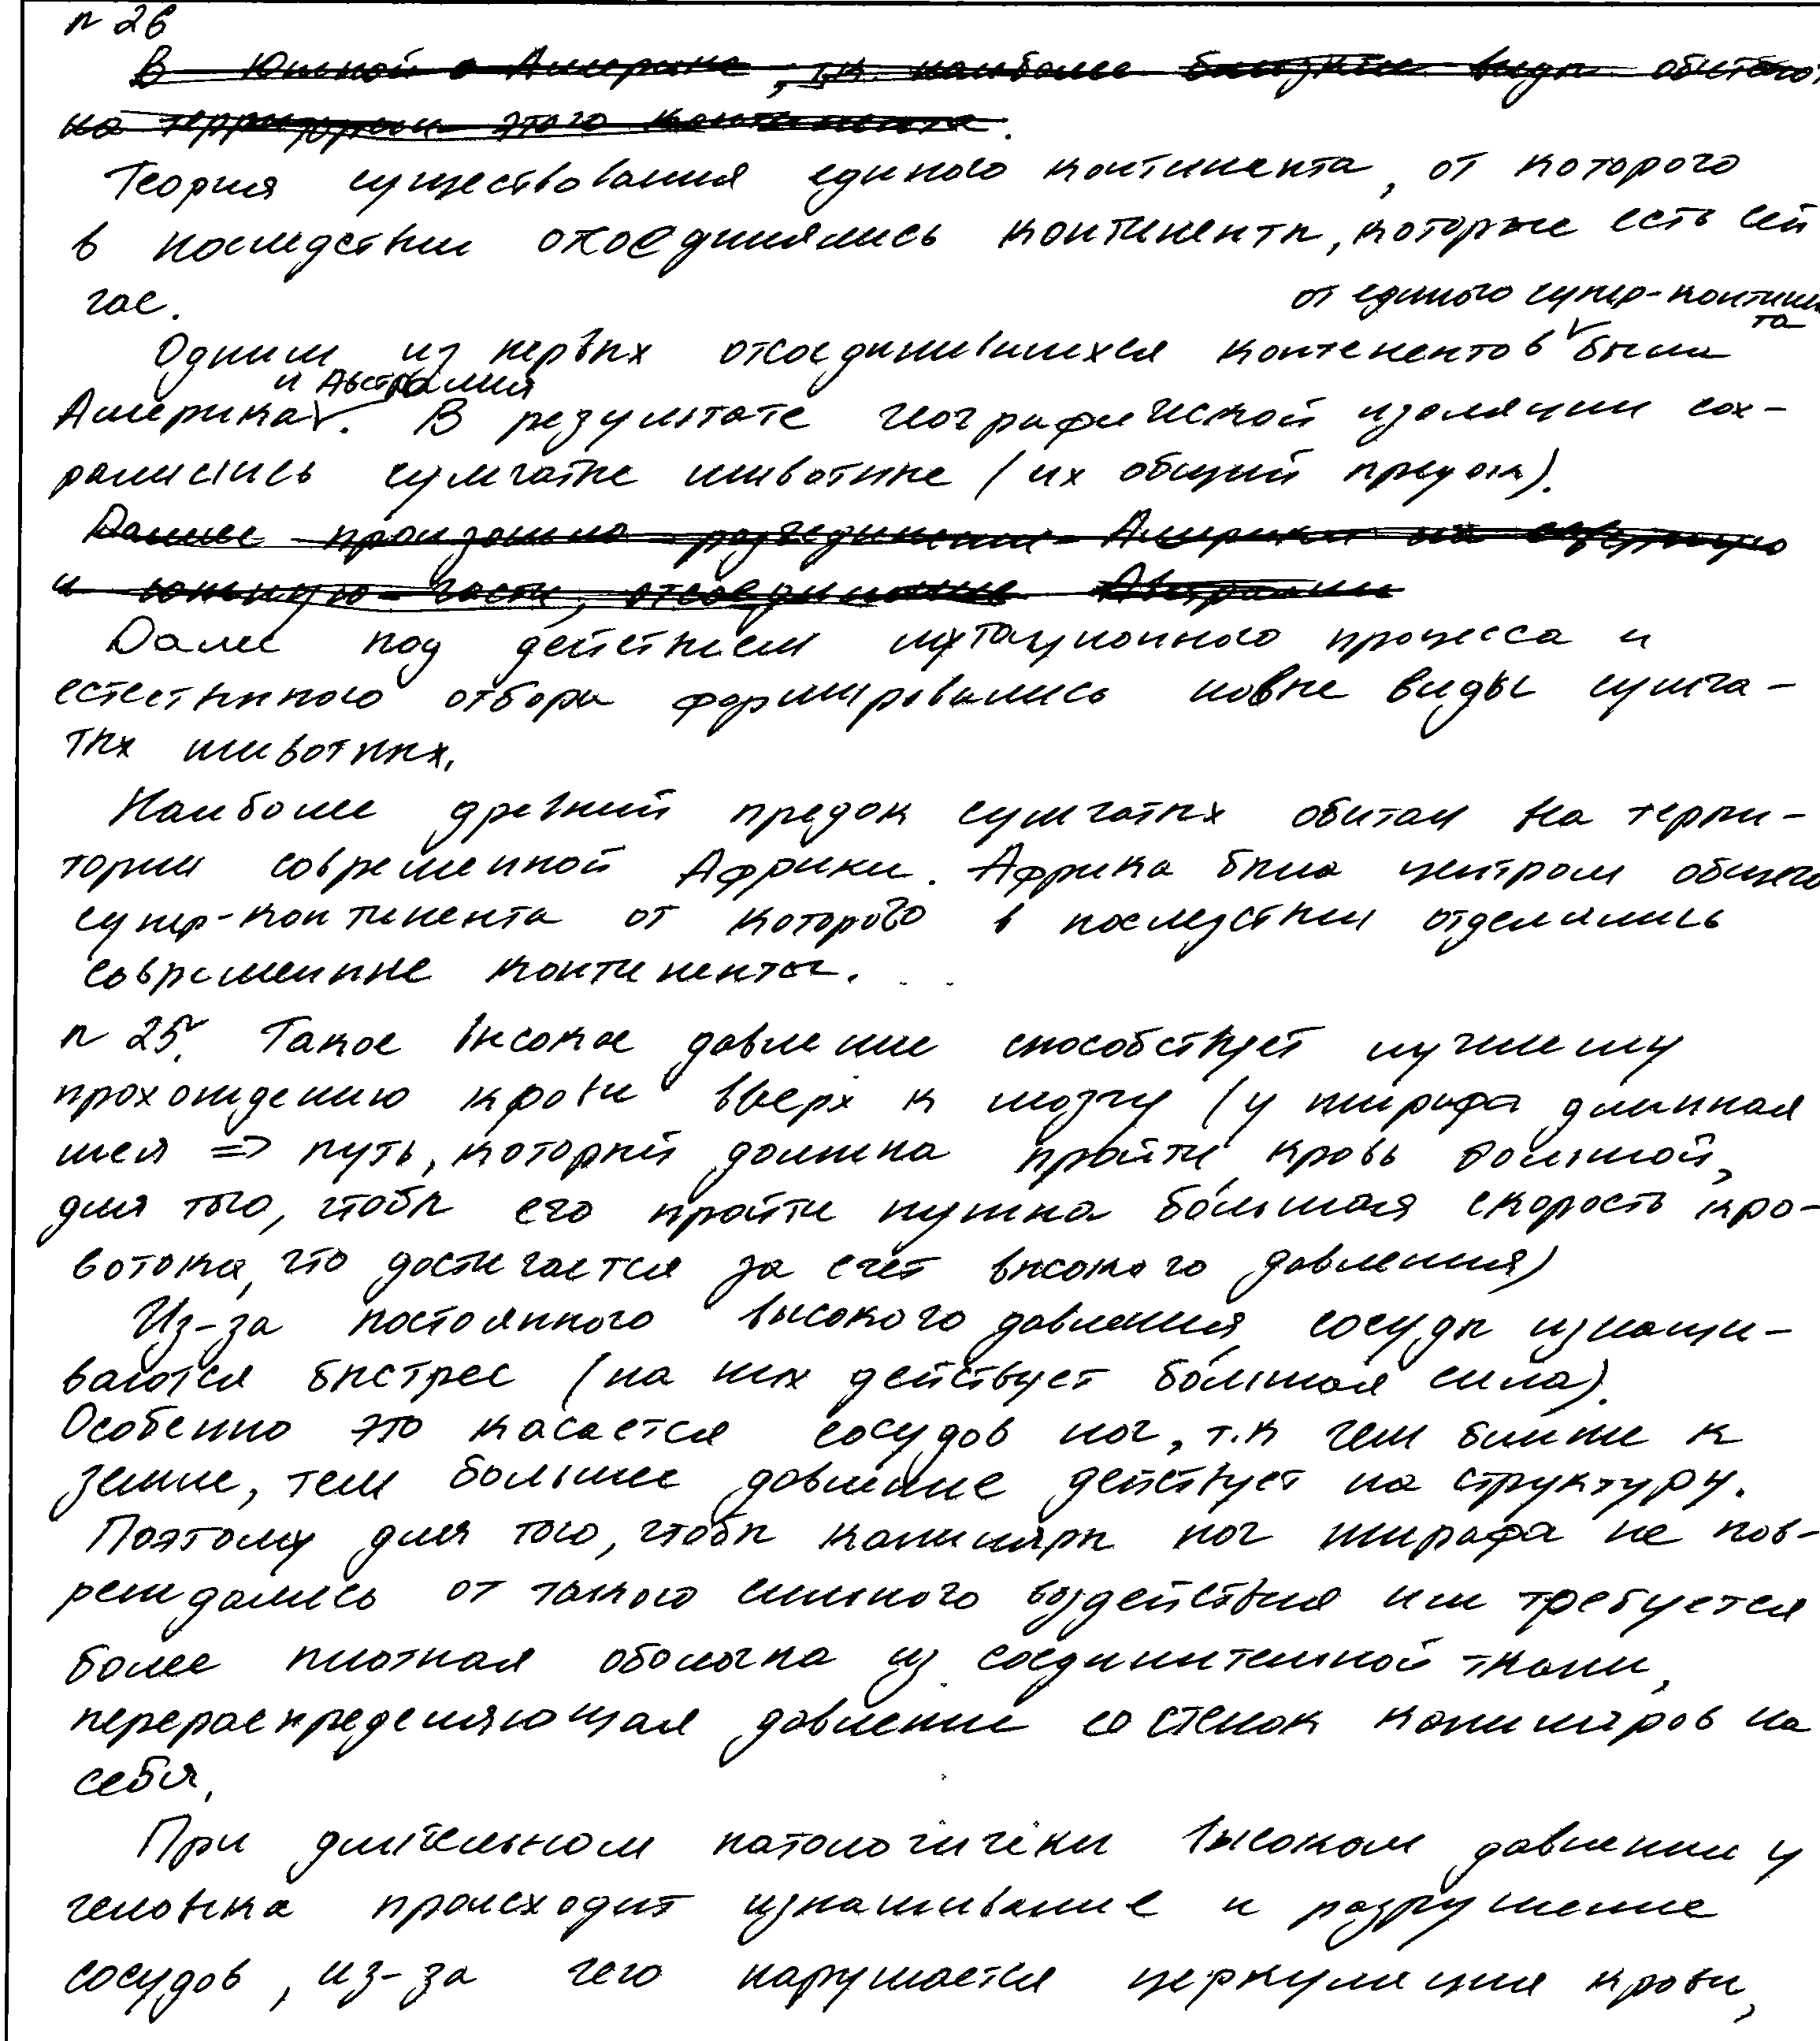 n 26
В Южной Америке, т.к. наиболее близкие виды обитают
на территории этого континента.
Теория существования единого континента, от которого
в последствии отсоединялись континенты, которые есть сей
час.
от единого супер-континен
та
Одним из первых отсоединившихся контенентов была
и Австралия
Америка. В результате географической изоляции сох-
ранились сумчатые животные (их общий предок).
Далее произошло разъединение Америки на северную
и южную части, отсоединение Австралии
Далее под действием мутационного процесса и
естественного отбора формировались новые виды сумча-
тых животных.
Наиболее древний предок сумчатых обитал на терри-
тории современной Африки. Африка была центром общего
супер-континента от которого в последствии отделились
современные континенты.
n 25. Такое высокое давление способствует лучшему
прохождению крови вверх к мозгу (у жирафа длинная
шея => путь, который должна пройти кровь большой,
для того, чтобы его пройти нужна бо́льшая скорость кро-
вотока, что достигается за счет высокого давления)
Из-за постоянного высокого давления сосуды изнаши-
ваются быстрее (на них действует бо́льшая сила).
Особенно это касается сосудов ног, т.к чем ближе к
земле, тем большее давление действует на структуру.
Поэтому для того, чтобы капилляры ног жирафа не пов-
реждались от такого сильного воздействия им требуется
более плотная оболочка из соединительной ткани,
перераспределяющая давление со стенок капилляров на
себя.
При длительном патологически высоком давлении у
человека происходит изнашивание и разрушение
сосудов, из-за чего нарушается циркуляция крови,